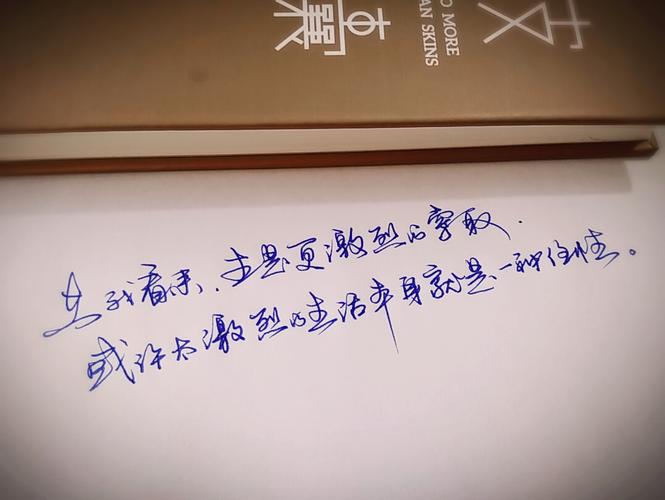 O MORE
AN SKINS
在我看来,生是更激烈的取.
或许太激烈的生活本身就是一种任性。